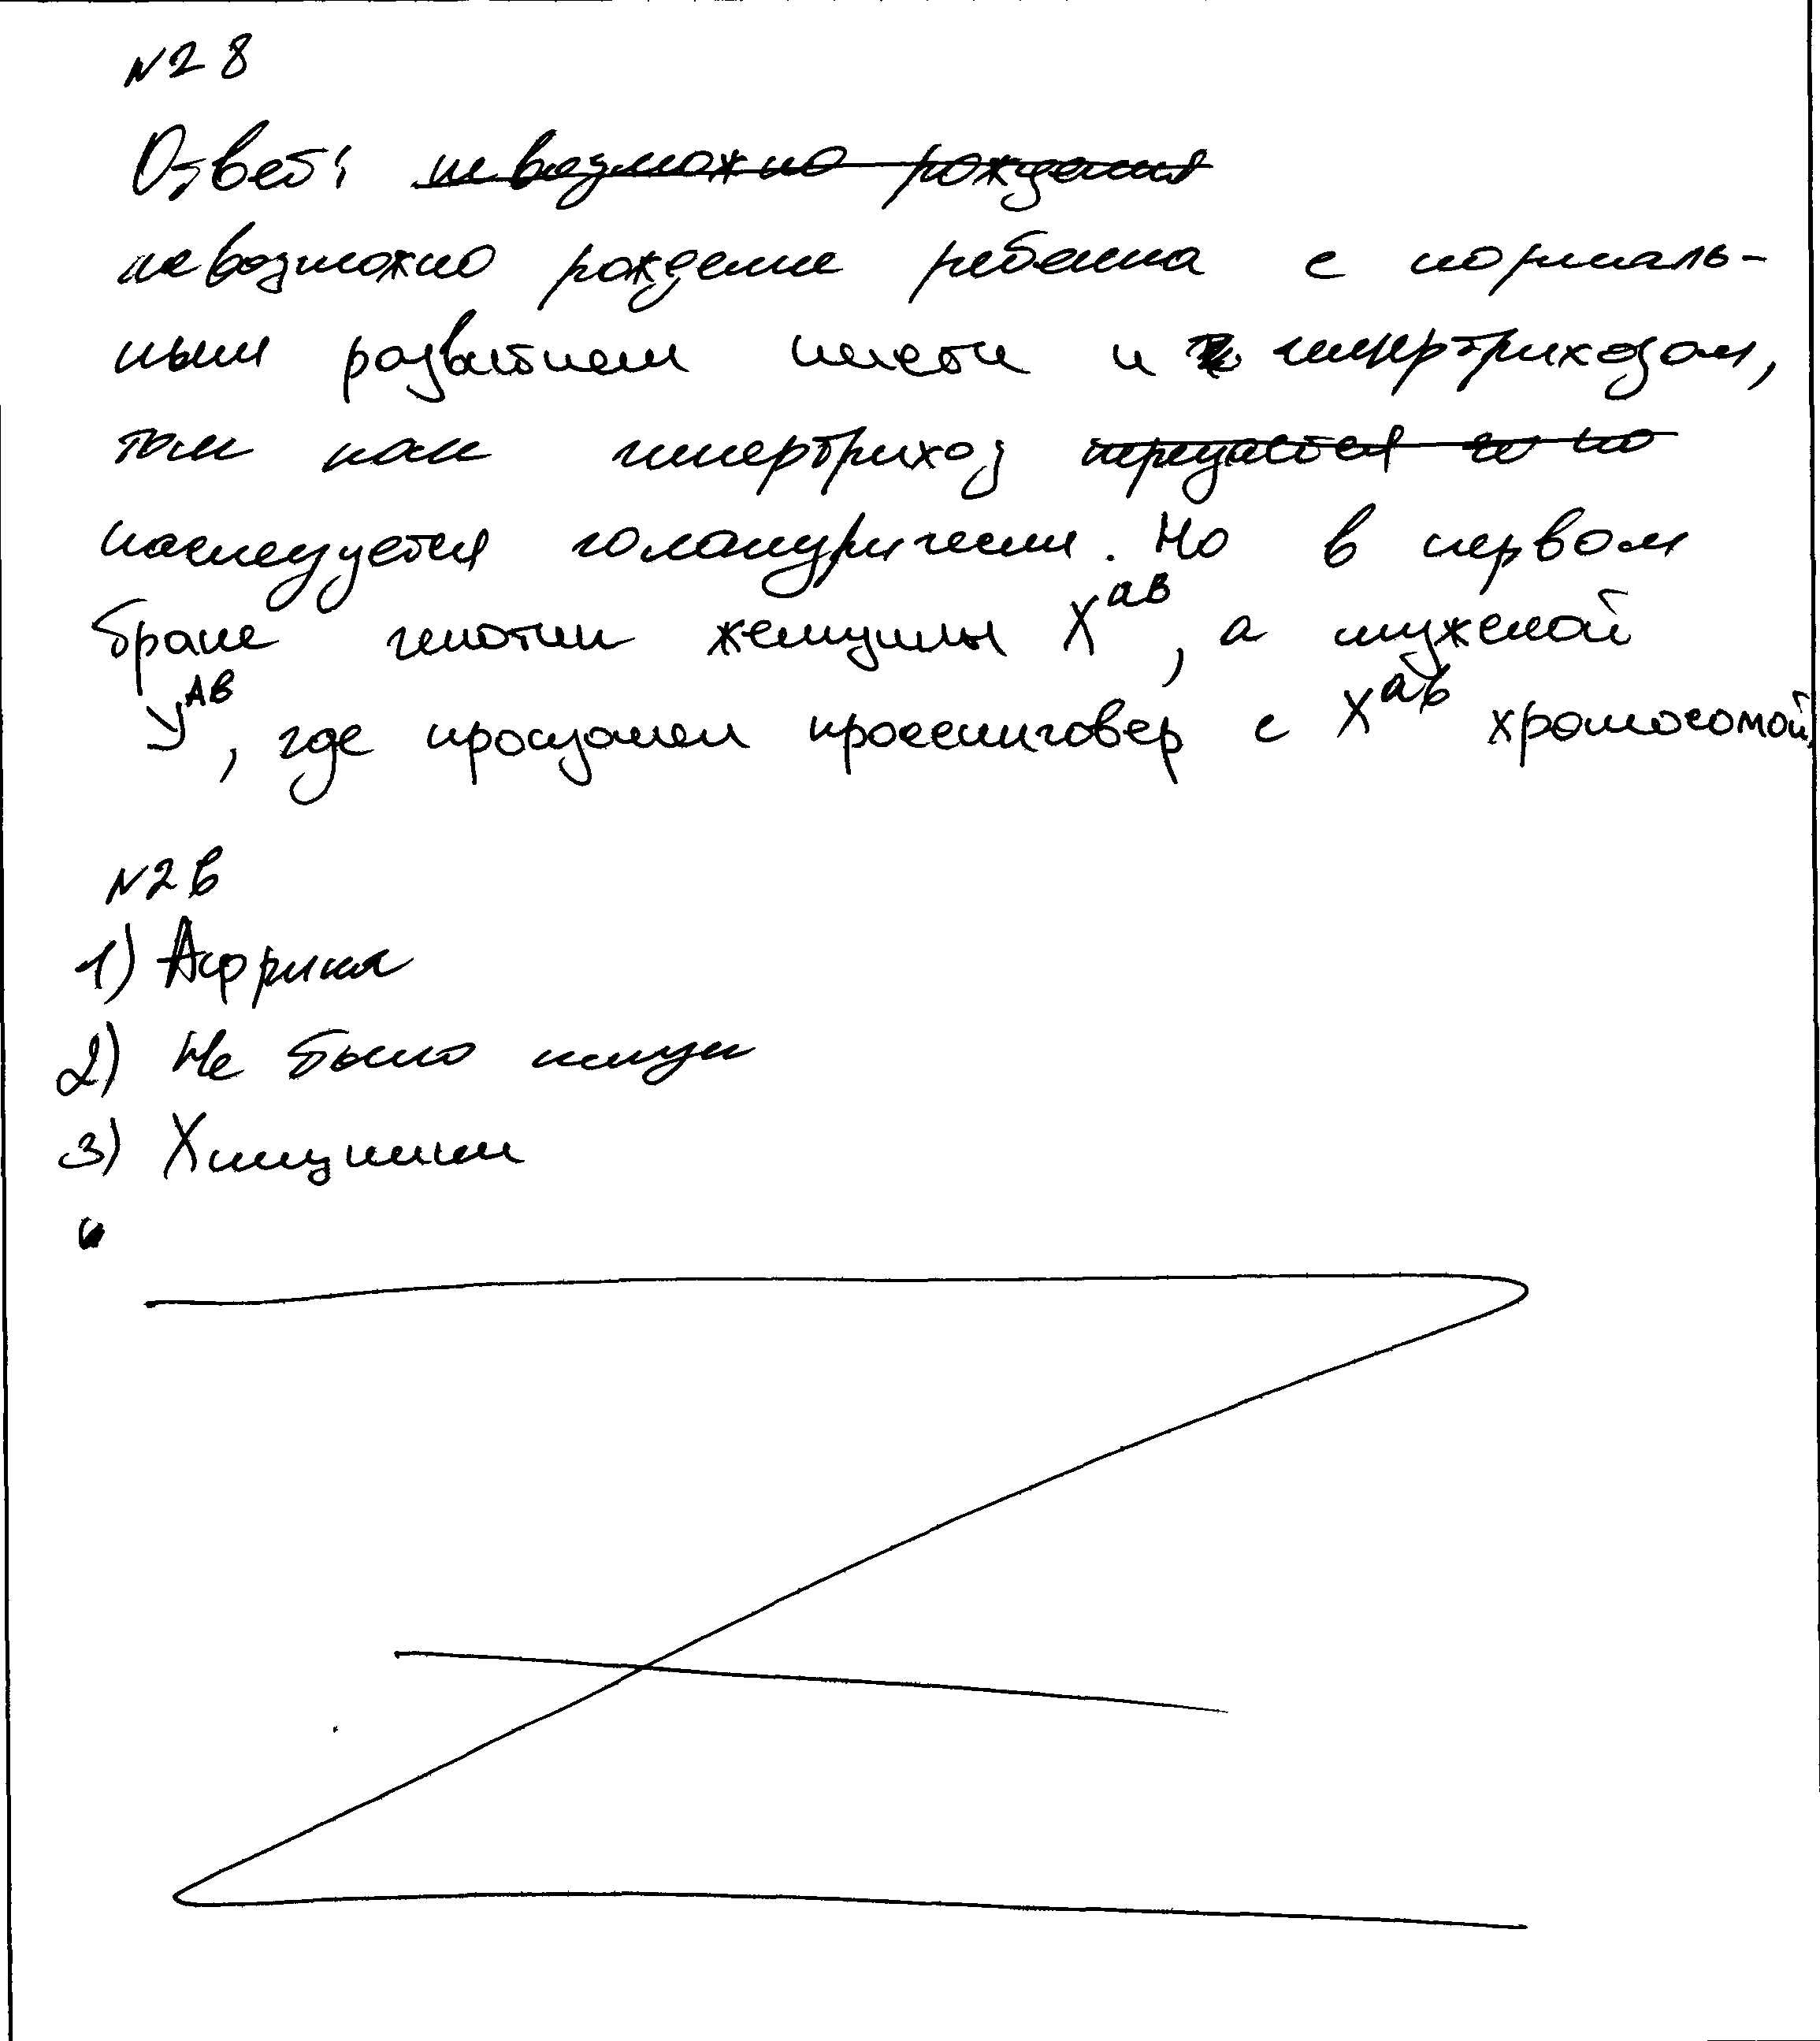 №28
Ответ: ~~невозможно рождения~~
невозможно рождение ребенка с нормаль-
ным развитием кисти и гипертриходом,
так как гипертриход ~~передается~~
наследуется голандрически. Но в первом
браке генотип женщины X^аВ, а мужской
У^АВ, где произошел кроссинговер с X^аb хромосомой,
№26
1) Африка
2) Не было пищи
3) Хищники